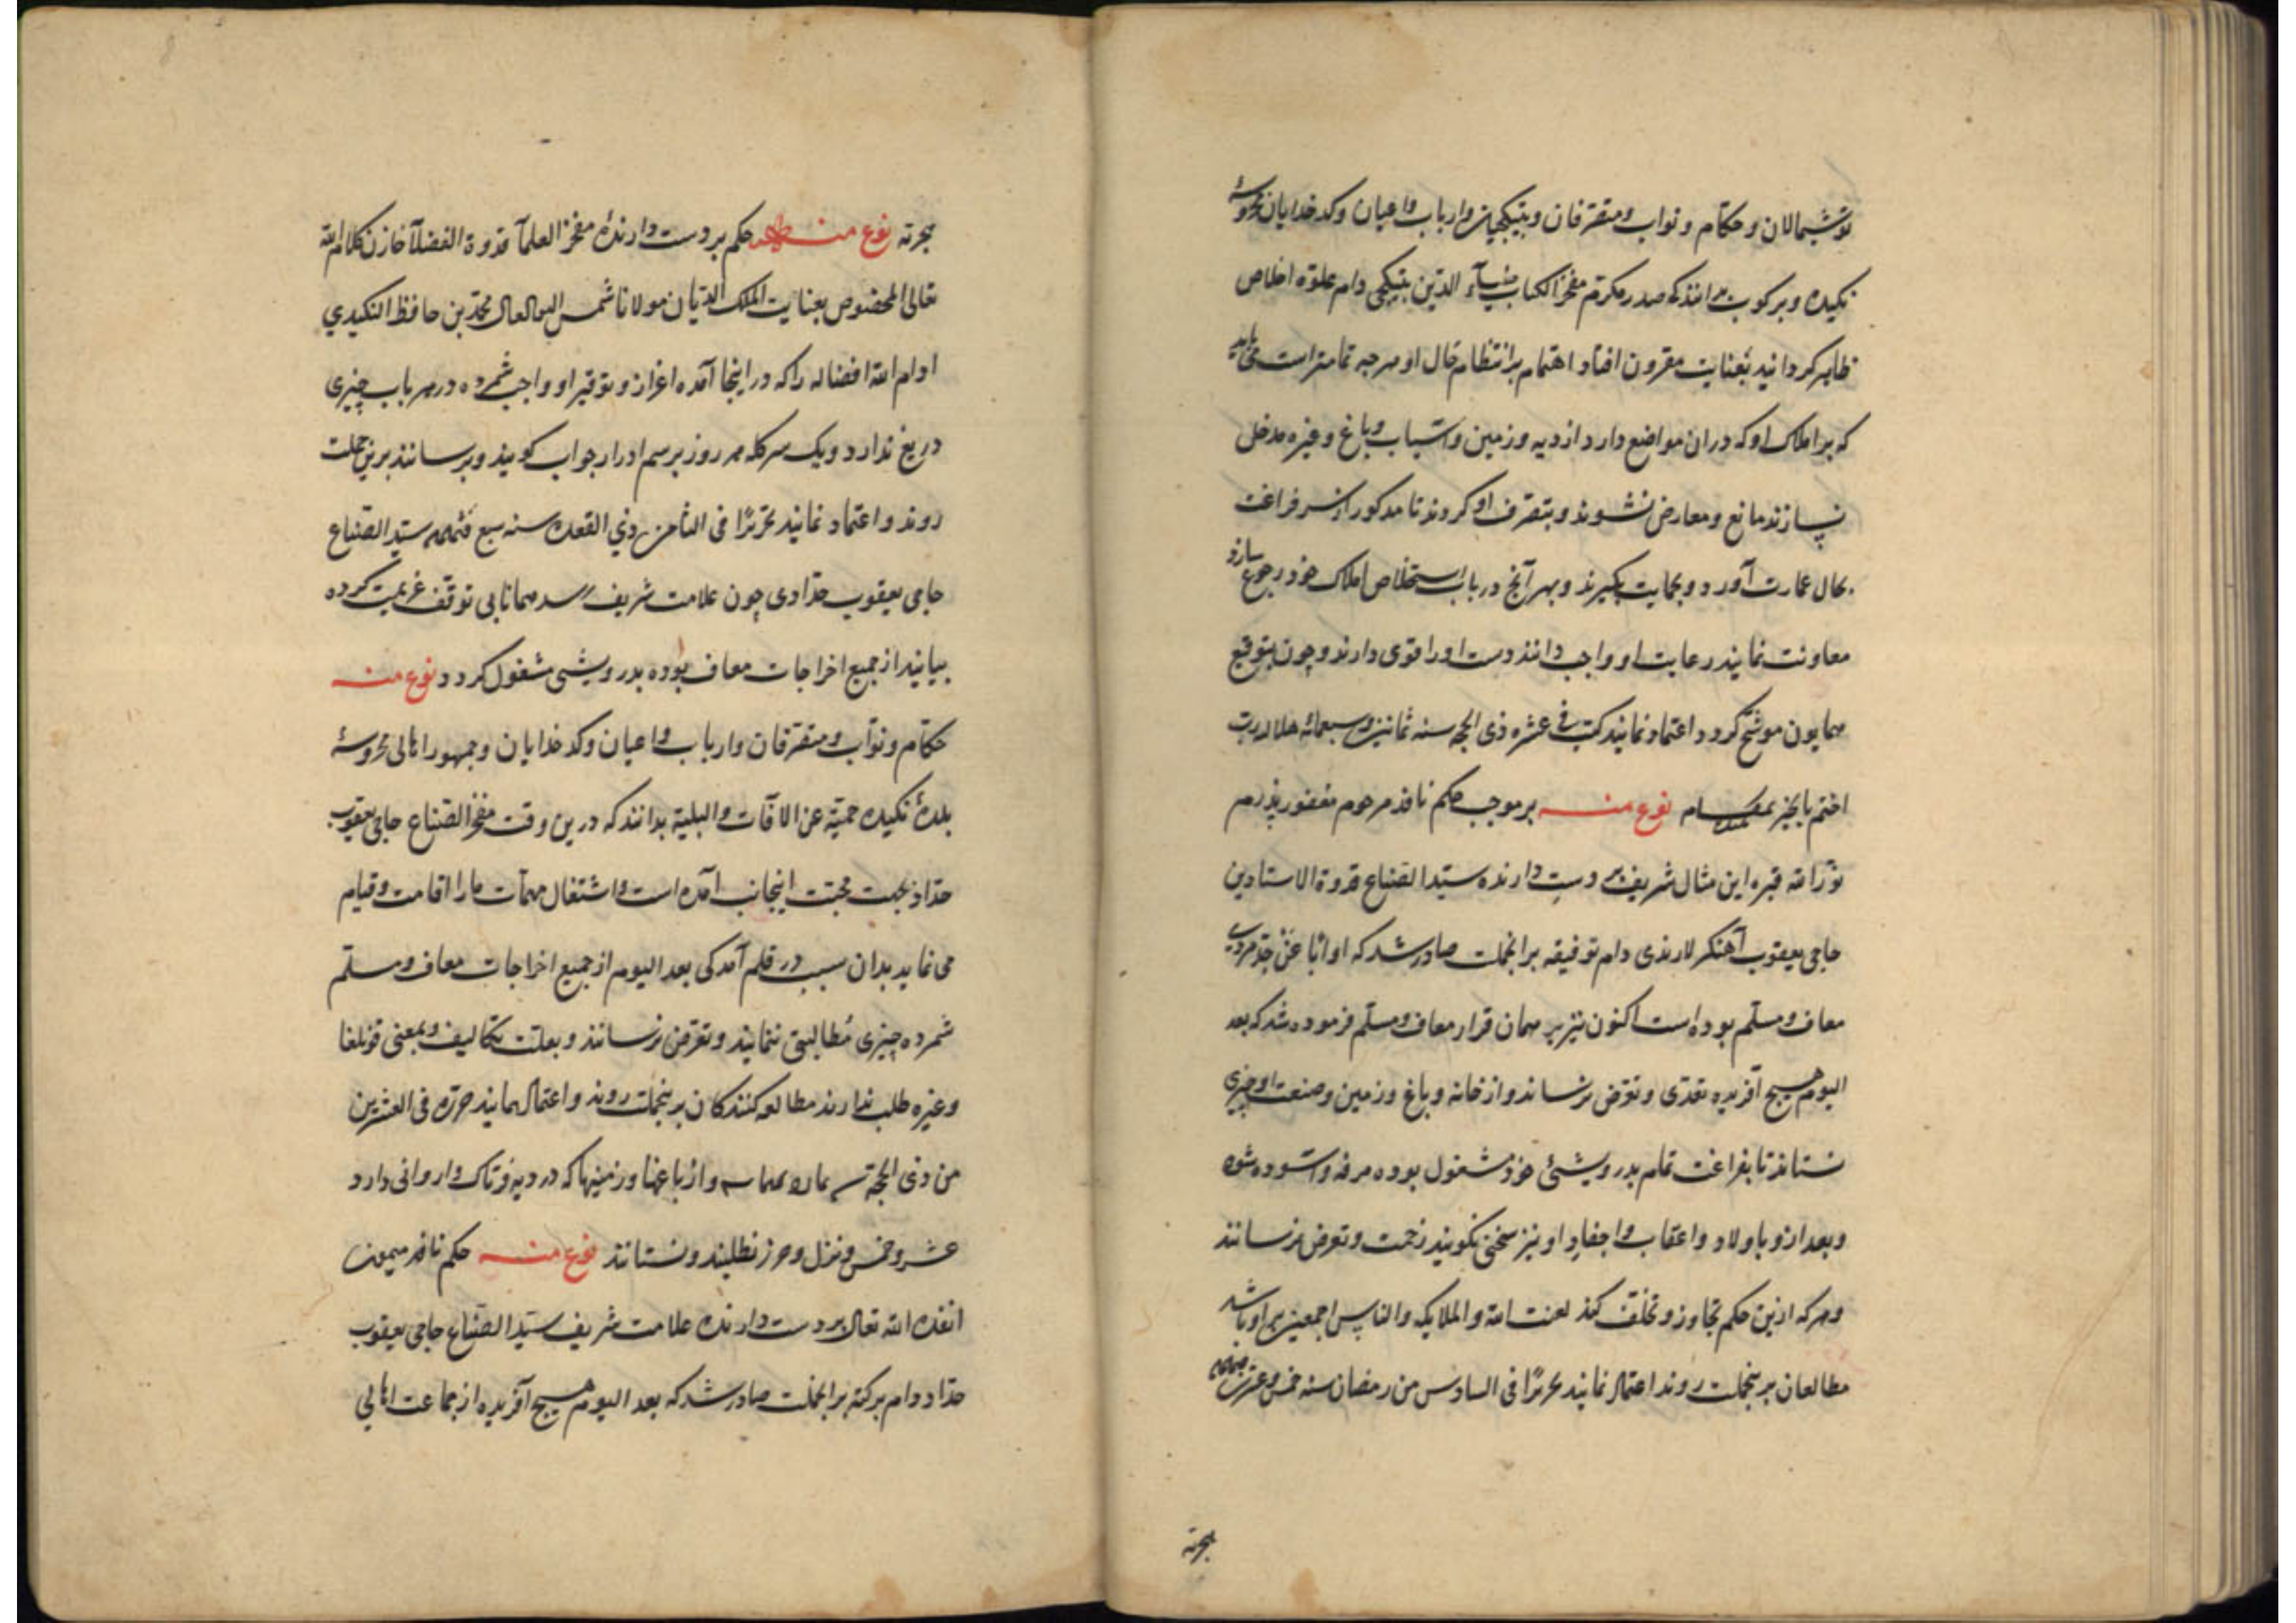 توشمالان و حکام و نواب و متصرفان و بتیکچیان و ارباب و اعیان و کدخدایان محروسهٔ
نکیده و برکوب بدانند که صدر مکرم مفخر الکتاب ضیآء الدین بتیکچی دام علوّه اخلاص
ظاهر کردانید بعنایت مقرون افتاد اهتمام بر انتظام حال او هرچه تمامتر است می باید
که بر املاک او که دران مواضع دارد از دیه و زمین و آسیاب و باغ و غیره مدخل
نسازند مانع و معارض نشوند و بتصرف او کروند تا مذکور از سر فراغت
بحال عمارت آورد و بحمایت بکیرند و بهر آنچ در باب استخلاص املاک خود رجوع سازد
معاونت نمایند رعایت او واجب دانند دست او را قوی دارند و چون بتوقیع
همایون موشح کردد اعتماد نمایند کتب فی عشره ذی الحجه سنه ثمانین و سبعمائه هلالیه رب
اختم بالخیر نوع منه بر موجب حکم نافذ مرحوم مغفور پدرم
نوّر الله قبره این مثال شریف بر دست دارنده سیّد الصناع قدوة الاستادین
حاجی یعقوب آهنکر لارندی دام توفیقه برانجملت صادر شد که او ابا عن جدّ
معاف و مسلّم بوده است اکنون نیز بر همان قرار معاف و مسلّم فرموده شد که بعد
الیوم هیچ آفریده تعدّی و تعرّض نرساند و از خانه و باغ و زمین و صنعت او چیزی
نستاند تا بفراغت تمام بدرویشی خود مشغول بوده مرفه و آسوده شود
و بعد ازو باولاد و اعقاب و احفاد او نیز سخنی نکویند زحمت و تعرض نرسانند
و هر که ازین حکم تجاوز و تخلّف کند لعنت الله و الملایکه و الناس اجمعین بر او باشد
مطالعان برینجملت روند اعتماد نمایند تحریرًا فی السادس من رمضان سنه خمس و عشرین
هجرته
هجرته نوع منه حکم بر دست دارندهٔ مفخر العلمآ قدوة الفضلآ خازن کلام الله
تعالی المخصوص بعنایت الملک الدیان مولانا شمس محمّد بن حافظ النکیدی
ادام الله افضاله را که در اینجا آمده اعزاز و توقیر او واجب شمرده در هر باب چیزی
دریغ ندارد و یک سر کله هر روز برسم ادرار جواب کویند و برسانند برین جملت
روند و اعتماد نمایند تحریرًا فی الثامن ذی القعده سنه سبع سیّد الصناع
حاجی یعقوب حدّادی چون علامت شریف رسد همانا بی توقف عزیمت کرده
بیایند از جمیع اخراجات معاف بوده بدرویشی مشغول کردد نوع منه
حکام و نوّاب و متصرفان و ارباب و اعیان و کدخدایان و جمهور اهالی محروسهٔ
بلدهٔ نکیده حمیّة عن الآفات و البلیة بدانند که درین وقت مفخر الصنّاع حاجی یعقوب
حدّاد بجهت محبّت اینجانب آمده است و اشتغال مهمّات ما را اقامت و قیام
می نماید بدان سبب در قلم آمد کی بعد الیوم از جمیع اخراجات معاف و مسلّم
شمرده چیزی مطالبتی ننمایند و تعرّض نرسانند و بعلت تکالیف و بمعنی قونلغا
و غیره طلب ندارند مطالعه کنندکان برینجملت روند و اعتماد نمایند حرّره فی العشرین
من ذی الحجه و از باغها و زمینها که در دیه دارد
عشر و خمس و نزل و حرز نطلبند و نستانند نوع منه حکم نافذ میمون
انفذه الله تعالی بر دست دارنده علامت شریف سیّد الصنّاع حاجی یعقوب
حدّاد دام برکته برانجملت صادر شد که بعد الیوم هیچ آفریده از جماعت اهالی